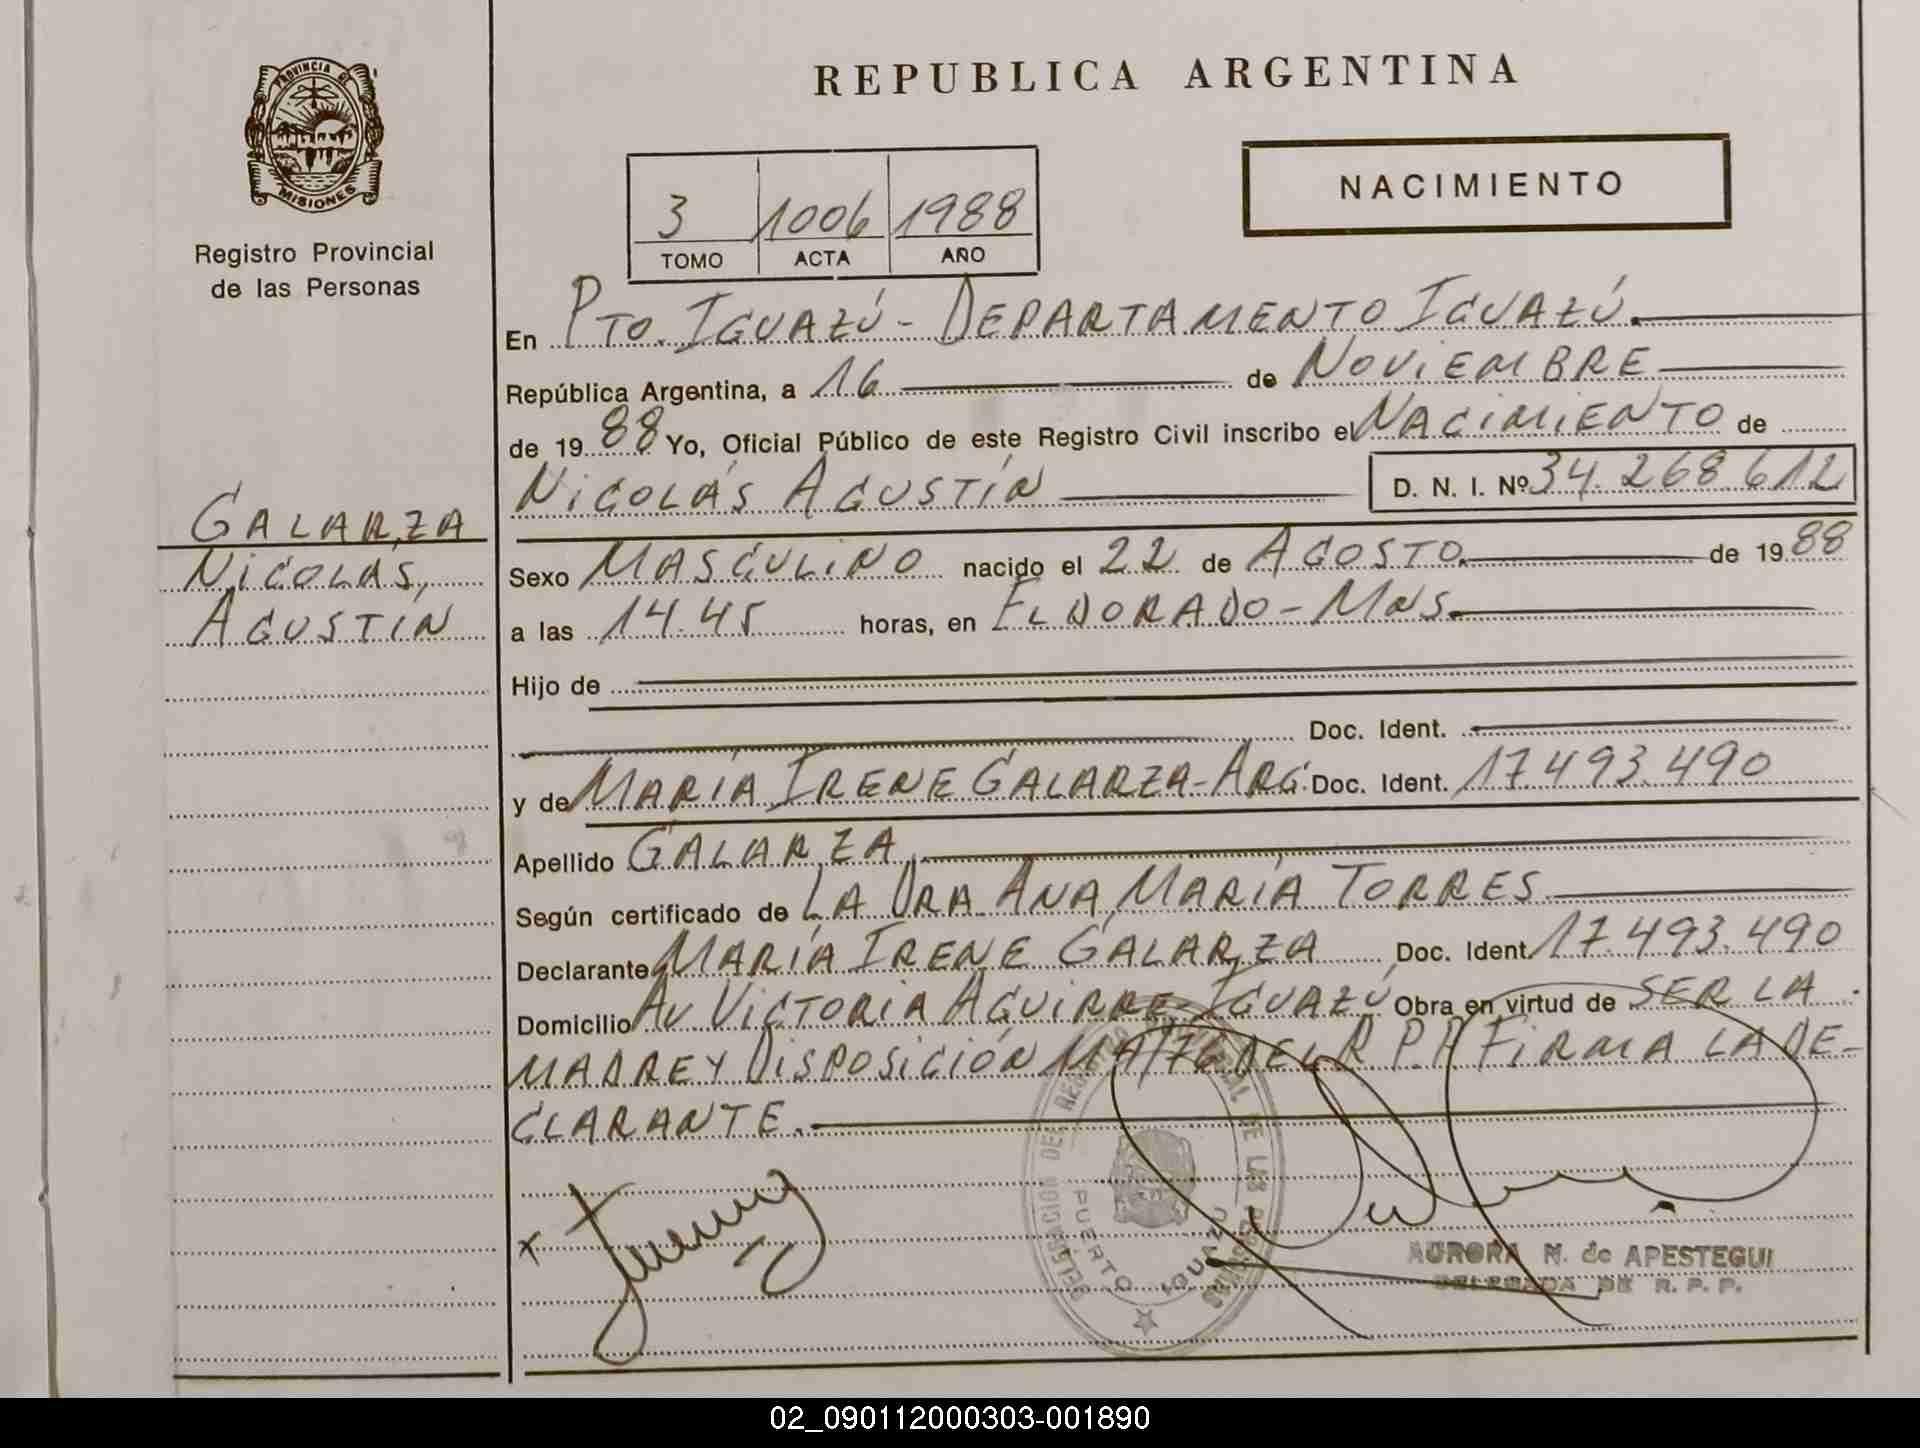 PROVINCIA DE
MISIONES
Registro Provincial
de las Personas
GALARZA
NICOLÁS,
AGUSTÍN
REPUBLICA ARGENTINA
NACIMIENTO
3 1006 1988
TOMO ACTA AÑO
En PTO. IGUAZÚ - DEPARTAMENTO IGUAZÚ.
República Argentina, a 16 de NOVIEMBRE
de 1988 Yo, Oficial Público de este Registro Civil inscribo el NACIMIENTO de
NICOLÁS AGUSTÍN D. N. I. Nº 34.268.612
Sexo MASCULINO nacido el 22 de AGOSTO. de 1988
a las 14.45 horas, en ELDORADO - MNS.
Hijo de
Doc. Ident.
y de MARÍA IRENE GALARZA - ARG. Doc. Ident. 17.493.490
Apellido GALARZA
Según certificado de LA DRA. ANA MARÍA TORRES
Declarante MARÍA IRENE GALARZA Doc. Ident. 17.493.490
Domicilio AV. VICTORIA AGUIRRE - IGUAZÚ Obra en virtud de SER LA
MADRE Y DISPOSICIÓN DEL R.P.P. FIRMA LA DE-
CLARANTE.
x
DELEGACION DEL REGISTRO PROVINCIAL DE LAS PERSONAS
PUERTO IGUAZU
AURORA N. de APESTEGUI
DELEGADA DE R. P. P.
02_090112000303-001890